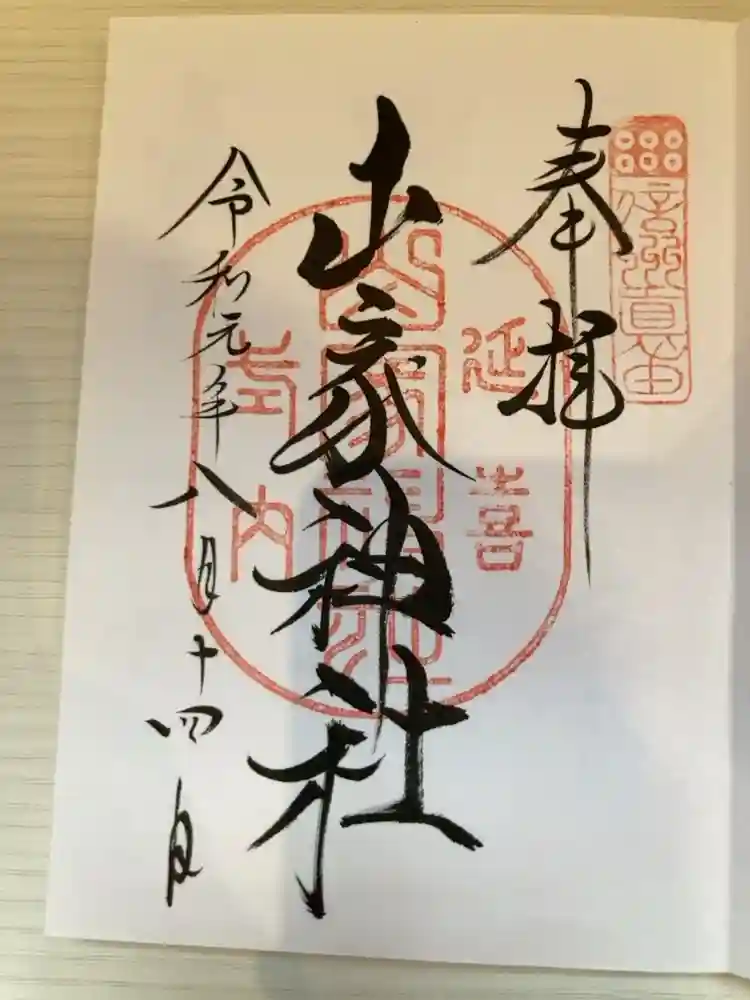 信州真田
奉拝
延喜
山家神社
山家神社
式内
令和元年八月十四日